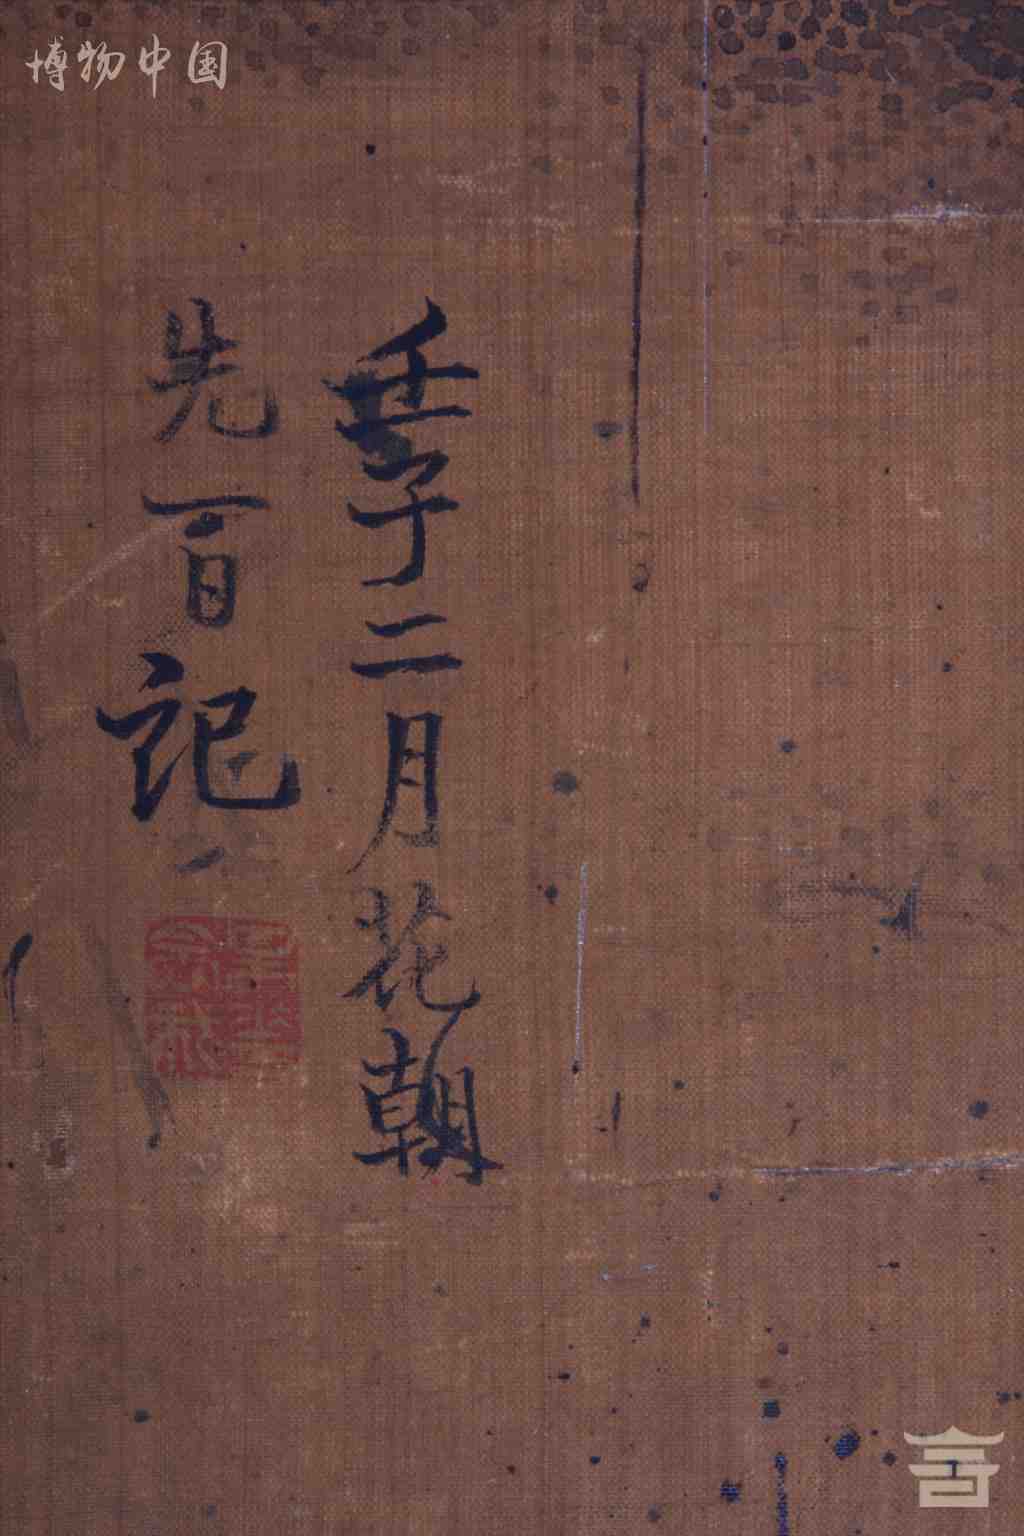 博物中国
壬子二月花朝
先百记